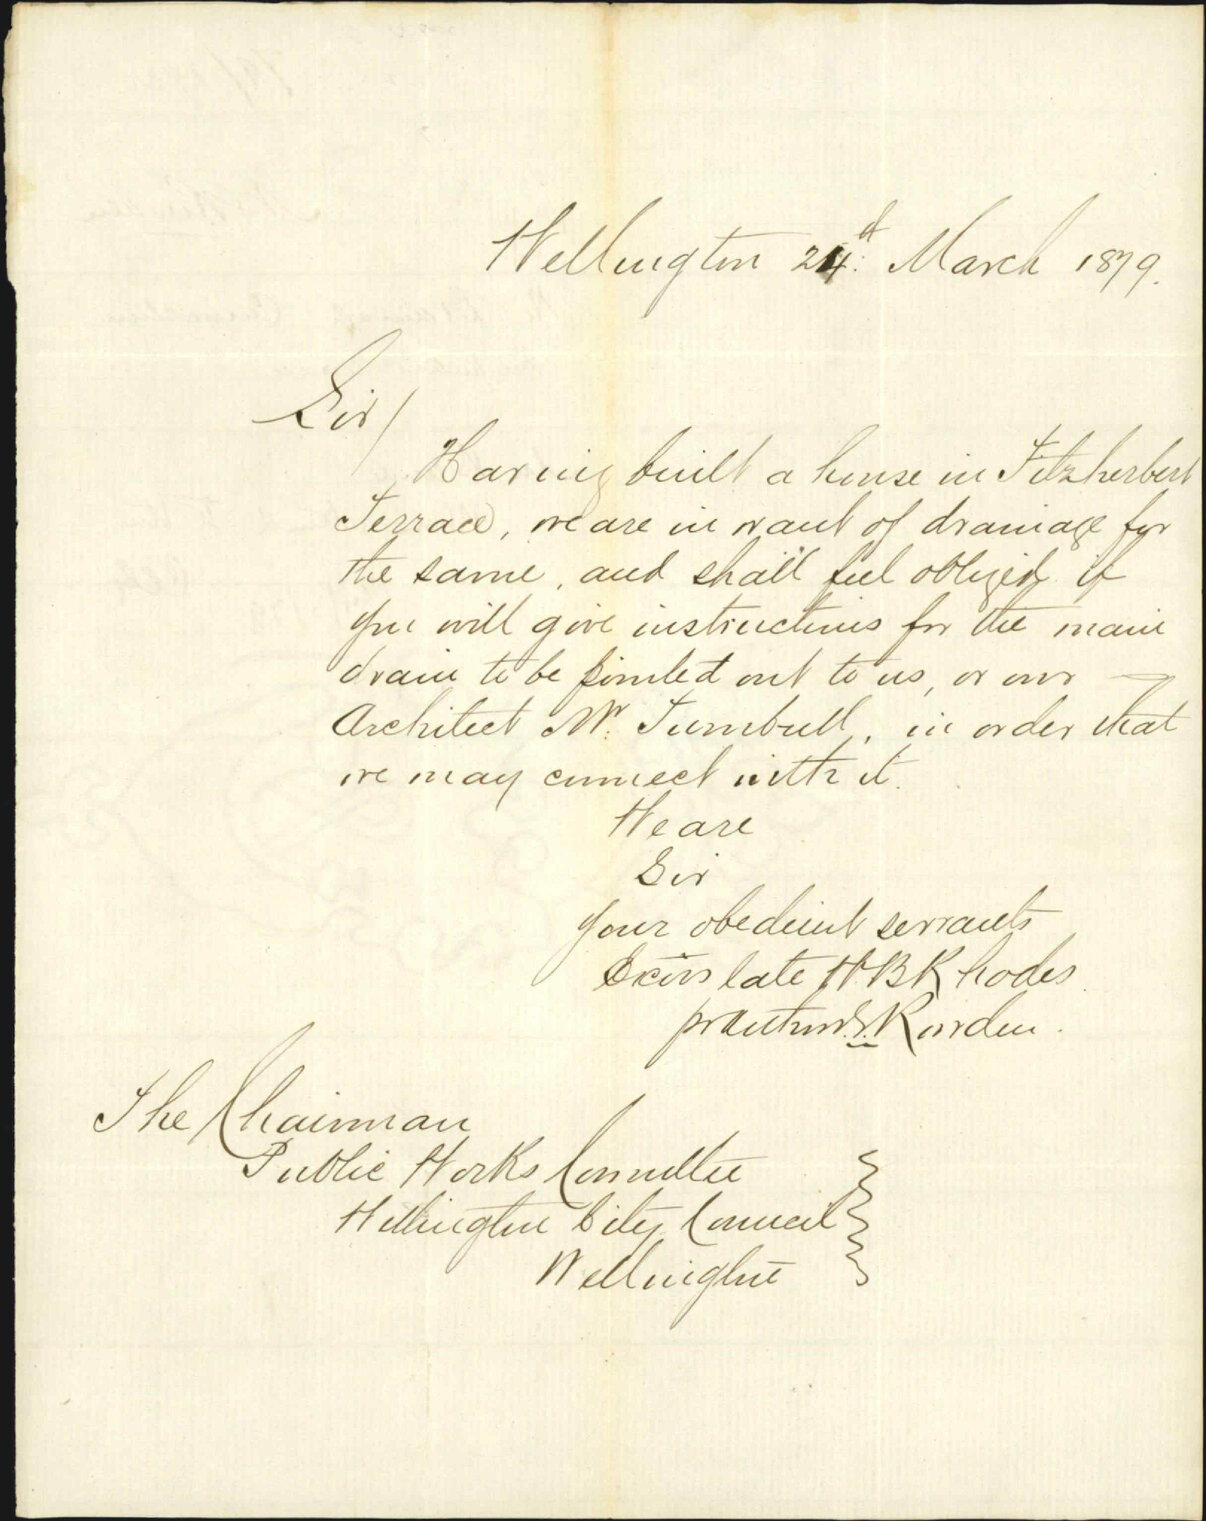 Wellington 24th March 1879.
Sir/
Having built a house in Fitzherbert
Terrace, we are in want of drainage for
the same, and shall feel obliged if
you will give instructions for the main
drain to be pointed out to us, or our
Architect Mr. Turnbull, in order that
we may connect with it.
We are
Sir
Your obedient servants
Exors late W B Rhodes
The Chairman
Public Works Committee
Wellington City Council
Wellington